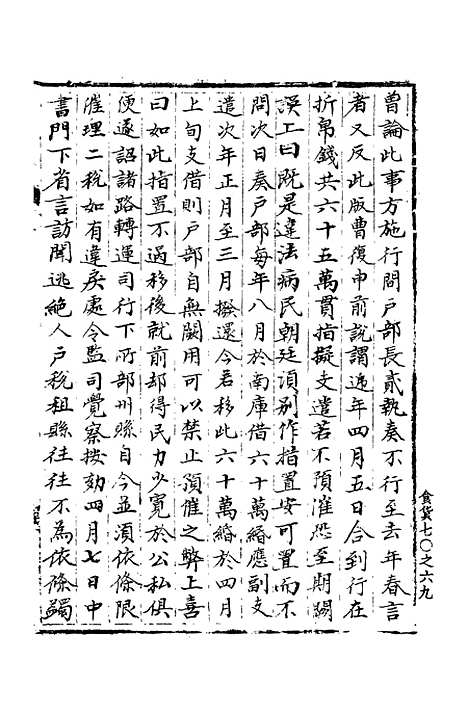 曽論此事方施行間戸部長貳執奏不行至去年春言
者又反此版曹復申前說謂遞年四月五日合到行在
折帛錢共六十五萬貫指擬支遣若不預催恐至期踢
誤上曰既是違法病民朝廷湏别作措置安可置而不
問次日奏戸部每年八月於南庫借六十萬緡應副支
遣次年正月至三月撥還今若移此六十萬緡於四月
上旬支借則戸部自無闕用可以禁止預催之弊上喜
曰如此措置不過移後就前却得民力少寛於公私俱
便遂詔諸路轉運司行下所部州縣自今並湏依條限
催理二税如有違戾處令監司覺察按劾四月七日中
書門下省言訪聞逃絶人戸税租縣往往不為依條蠲
食貨七〇之六九